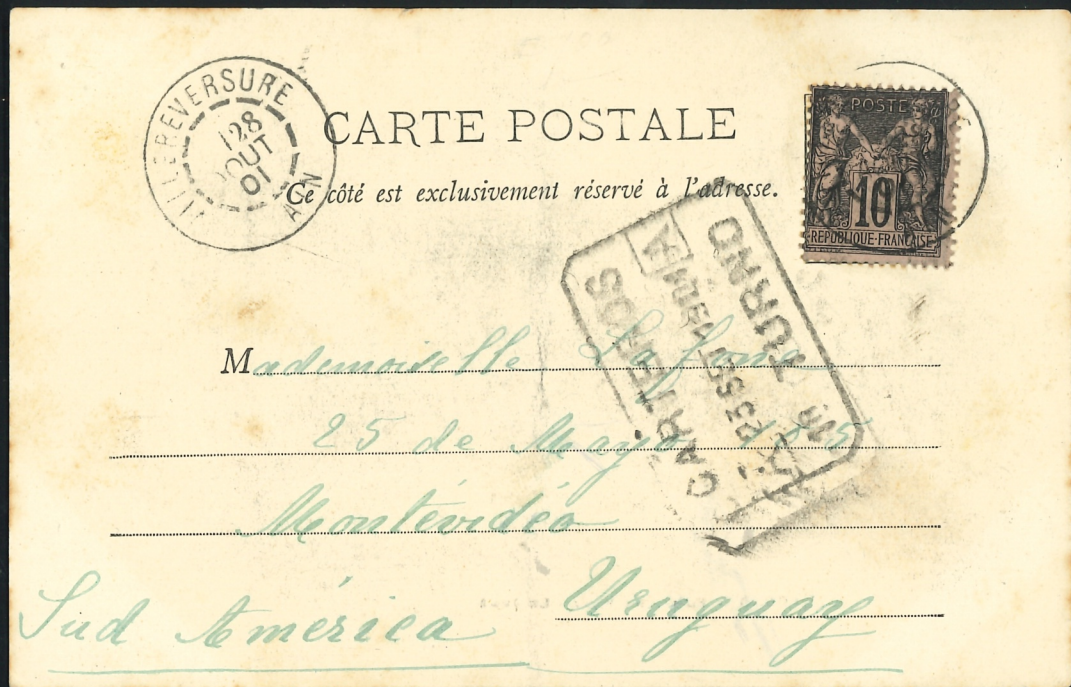 VILLEREVERSURE
28
AOUT
01
AIN
CARTE POSTALE
Ce côté est exclusivement réservé à l'adresse.
POSTE
10
REPUBLIQUE FRANÇAISE
CARTEROS
A 23 SET 1901
TURNO
Mademoiselle Lafone
25 de Mayo 195
Montévidéo
Uruguay
Sud América